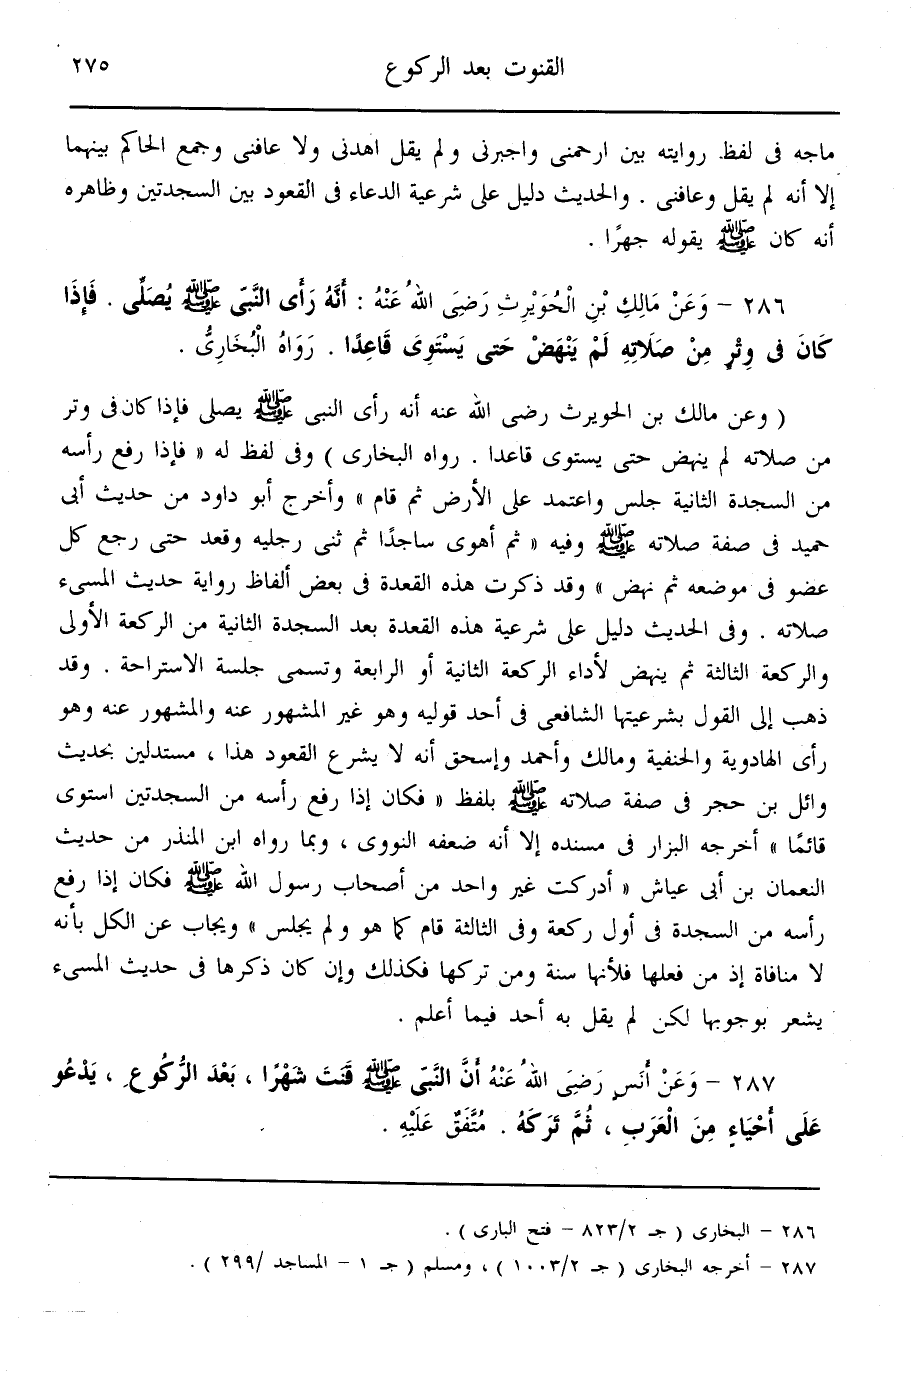 القنوت بعد الركوع ٢٧٥
ماجه فى لفظ روايته بين ارحمنى واجبرنى ولم يقل اهدنى ولا عافنى وجمع الحاكم بينهما
إلا أنه لم يقل وعافنى . والحديث دليل على شرعية الدعاء فى القعود بين السجدتين وظاهره
أنه كان ﷺ يقوله جهرًا .
٢٨٦ – وَعَنْ مَالِكِ بْنِ الْحُوَيْرِثِ رَضِىَ اللهُ عَنْهُ : أَنَّهُ رَأَى النَّبِّى ﷺ يُصَلِّى . فَإِذَا
كَانَ فى وِتْرٍ مِنْ صَلَاتِهِ لَمْ يَنْهَضْ حَتى يَسْتَوِىَ قَاعِدًا . رَوَاهُ الْبُخَارِىُّ .
( وعن مالك بن الحويرث رضى الله عنه أنه رأى النبى ﷺ يصلى فإذا كان فى وتر
من صلاته لم ينهض حتى يستوى قاعدا . رواه البخارى ) وفى لفظ له « فإذا رفع رأسه
من السجدة الثانية جلس واعتمد على الأرض ثم قام » وأخرج أبو داود من حديث أبى
حميد فى صفة صلاته ﷺ وفيه « ثم أهوى ساجدًا ثم ثنى رجليه وقعد حتى رجع كل
عضو فى موضعه ثم نهض » وقد ذكرت هذه القعدة فى بعض ألفاظ رواية حديث المسىء
صلاته . وفى الحديث دليل على شرعية هذه القعدة بعد السجدة الثانية من الركعة الأولى
والركعة الثالثة ثم ينهض لأداء الركعة الثانية أو الرابعة وتسمى جلسة الاستراحة . وقد
ذهب إلى القول بشرعيتها الشافعى فى أحد قوليه وهو غير المشهور عنه والمشهور عنه وهو
رأى الهادوية والحنفية ومالك وأحمد وإسحق أنه لا يشرع القعود هذا ، مستدلين بحديث
وائل بن حجر فى صفة صلاته ﷺ بلفظ « فكان إذا رفع رأسه من السجدتين استوى
قائمًا » أخرجه البزار فى مسنده إلا أنه ضعفه النووى ، وبما رواه ابن المنذر من حديث
النعمان بن أبى عياش « أدركت غير واحد من أصحاب رسول الله ﷺ فكان إذا رفع
رأسه من السجدة فى أول ركعة وفى الثالثة قام كما هو ولم يجلس » ويجاب عن الكل بأنه
لا منافاة إذ من فعلها فلأنها سنة ومن تركها فكذلك وإن كان ذكرها فى حديث المسىء
يشعر بوجوبها لكن لم يقل به أحد فيما أعلم .
٢٨٧ – وَعَنْ أَنَسٍ رَضِىَ اللهُ عَنْهُ أَنَّ النَّبِّى ﷺ قَنَتَ شَهْرًا ، بَعْدَ الرُّكُوعِ ، يَدْعُو
عَلَى أَحْيَاءٍ مِنَ الْعَرَبِ ، ثُمَّ تَرَكَهُ . مُتَّفَقٌ عَلَيْهِ .
٢٨٦ – البخارى ( جـ ٨٢٣/٢ – فتح البارى ) .
٢٨٧ – أخرجه البخارى ( جـ ١٠٠٣/٢ ) ، ومسلم ( جـ ١ – المساجد /٢٩٩ ) .